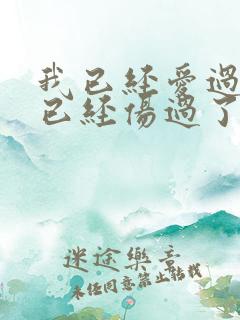 我已經愛過
已經傷過了
迷途樂音
未任同意禁止轉載